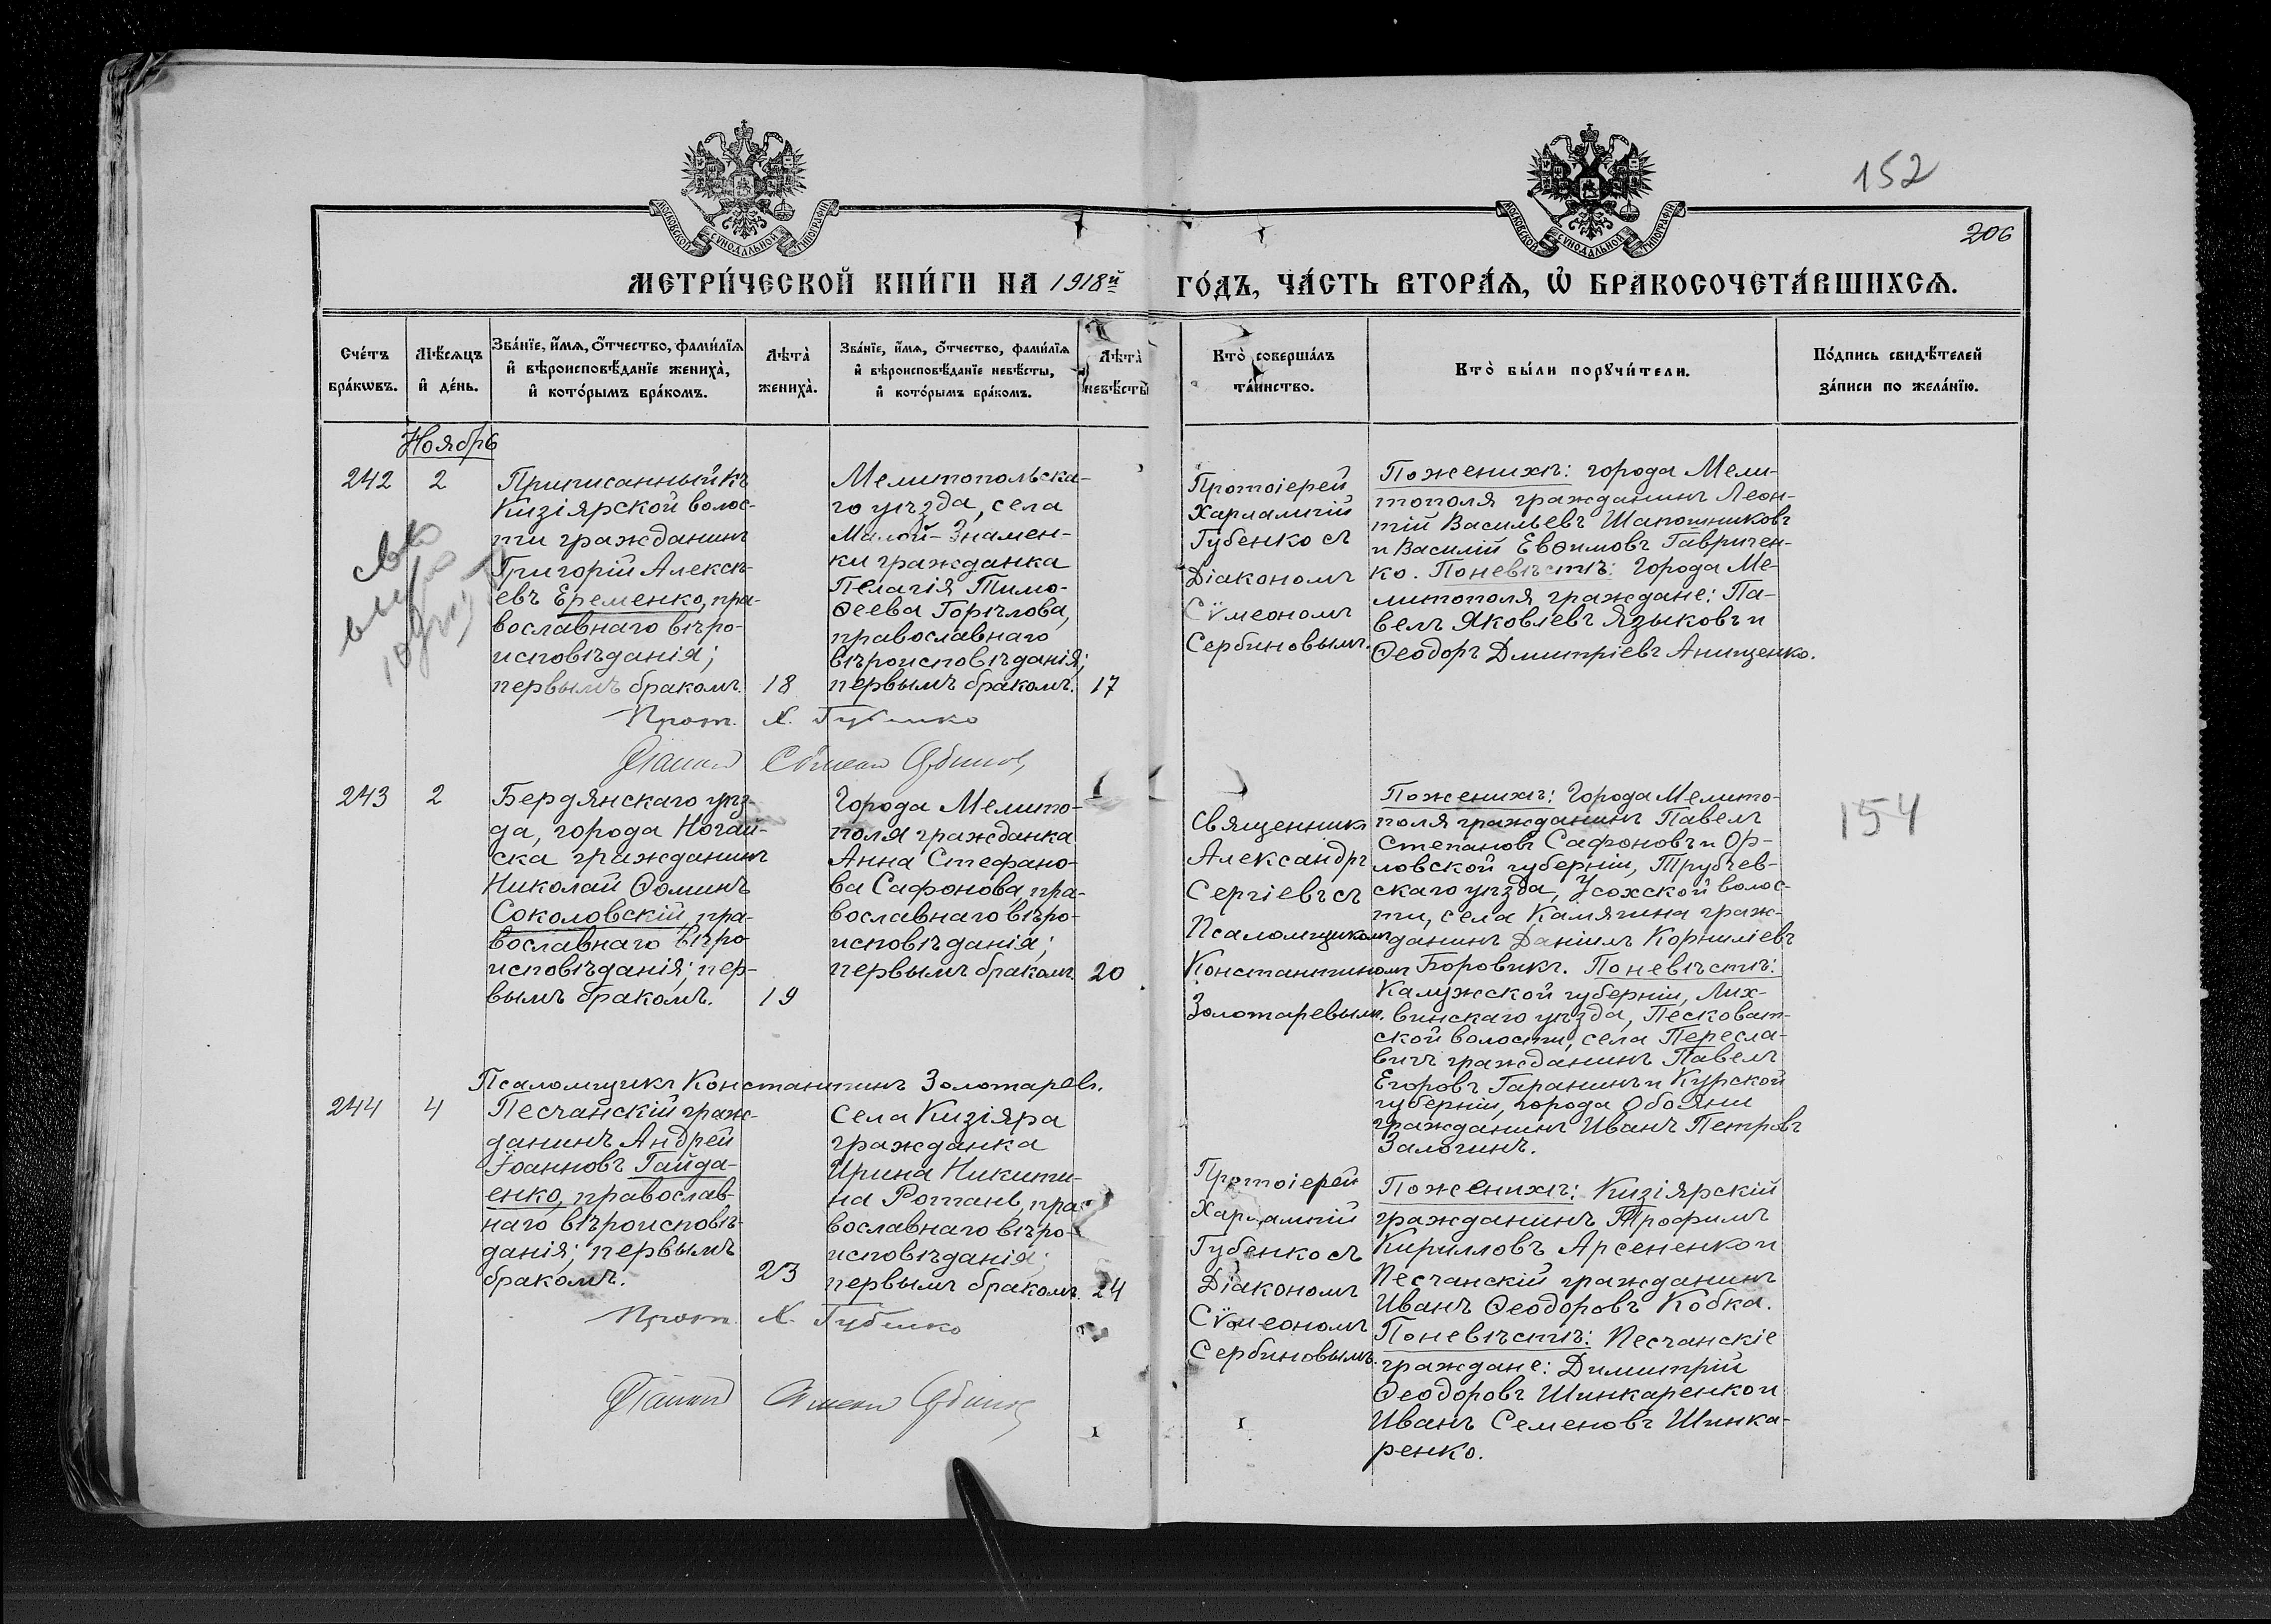 152
206
МОСКОВСКОЙ СУНОДАЛЬНОЙ ТИПОГРАФІИ
МОСКОВСКОЙ СУНОДАЛЬНОЙ ТИПОГРАФІИ
МЕТРИ́ЧЕСКОЙ КНИ́ГИ НА 1918й ГО́ДЪ, ЧА́СТЬ ВТОРА́Я, Ѽ БРАКОСОЧЕТА́ВШИХСѦ.
Сче́тъ бра́кѡвъ.
Мѣ́сяцъ и҆ де́нь.
Зва́нїе, и҆́мѧ, ѻ҆́тчество, фами́лїѧ
и҆ вѣроисповѣ́данїе жениха̀,
и҆ кото́рымъ бра́комъ.
Лѣ́та̀ жениха̀.
Зва́нїе, и҆́мѧ, ѻ҆́тчество, фами́лїѧ
и҆ вѣроисповѣ́данїе невѣ́сты,
и҆ кото́рымъ бра́комъ.
Лѣ́та̀ невѣ́сты
Кто̀ соверша́лъ
та́инство.
Кто̀ бы́ли порꙋчи́тели.
По́дпись свидѣ́телей
за́писи по жела́нїю.
Ноябрь
242
2
Приписанный къ
Кизіярской волос-
ти гражданинъ
Григорій Алексѣ-
евъ Еременко, пра-
вославнаго вѣро-
исповѣданія;
первымъ бракомъ.
18
Мелитопольска-
го уѣзда, села
Малой-Знамен-
ки гражданка
Пелагія Тимо-
ѳеева Горѣлова,
православнаго
вѣроисповѣданія;
первымъ бракомъ.
17
Протоіерей
Харлампій
Губенко съ
Діакономъ
Сѷмеономъ
Сербиновымъ.
По женихѣ: города Мели-
тополя гражданинъ Леон-
тій Васильевъ Шапошниковъ
и Василій Евѳимовъ Гавричен-
ко. По невѣстѣ: Города Ме-
литополя граждане: Па-
велъ Яковлевъ Языковъ и
Ѳеодоръ Дмитріевъ Анищенко.
Прот. Х. Губенко
Діаконъ Сѷмеонъ Сербиновъ
243
2
Бердянскаго уѣз-
да, города Ногай-
ска гражданинъ
Николай Ѳоминъ
Соколовскій, пра-
вославнаго вѣро-
исповѣданія; пер-
вымъ бракомъ.
19
Города Мелито-
поля гражданка
Анна Стефано-
ва Сафонова, пра-
вославнаго вѣро-
исповѣданія;
первымъ бракомъ.
20
Священникъ
Александръ
Сергіевъ съ
Псаломщикомъ
Константиномъ
Золотаревымъ.
По женихѣ: Города Мелито-
поля гражданинъ Павелъ
Степановъ Сафоновъ и Ор-
ловской губерніи, Трубчев-
скаго уѣзда, Усохской волос-
ти, села Камягина граж-
данинъ Даніилъ Корниліевъ
Боровикъ. По невѣстѣ:
Калужской губерніи, Лих-
винскаго уѣзда, Песковат-
ской волости, села Пересла-
вичъ гражданинъ Павелъ
Егоровъ Гаранинъ и Курской
губерніи, города Обояни
гражданинъ Иванъ Петровъ
Залогинъ.
154
Псаломщикъ Константинъ Золотаревъ.
244
4
Песчанскій граж-
данинъ Андрей
Іоанновъ Гайда-
енко, православ-
наго вѣроисповѣ-
данія; первымъ
бракомъ.
23
Села Кизіяра
гражданка
Ирина Никити-
на Ротань, пра-
вославнаго вѣро-
исповѣданія;
первымъ бракомъ.
24
Протоіерей
Харлампій
Губенко съ
Діакономъ
Сѷмеономъ
Сербиновымъ.
По женихѣ: Кизіярскій
гражданинъ Трофимъ
Кирилловъ Арсененко и
Песчанскій гражданинъ
Иванъ Ѳеодоровъ Кобка.
По невѣстѣ: Песчанскіе
граждане: Димитрій
Ѳеодоровъ Шинкаренко и
Иванъ Семеновъ Шинка-
ренко.
Прот. Х. Губенко
Діаконъ Сѷмеонъ Сербиновъ